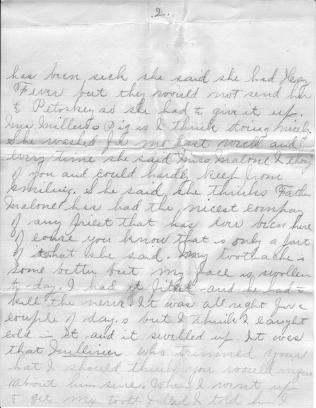 2.
has been sick she said she had Hay
Fever but they would not send her
to Petoskey so she had to give it up.
Mrs. Miller's Pig is I think doing nicely.
She washed for me last week and
every time she said Miss Malone I thot
of you and could hardly keep from
smiling. She said she thinks Fath
Malone has had the nicest company
of any priest that has ever been here
of course you know that is only a part
of what she said. My toothache is
some better but my face is swollen
to-day. I had it filled and he had to
kill the nerve. It was all right for a
couple of days but I think I caught
cold in it and it swelled up. It was
that Milliner who trimmed your
hat I should think you would
about him sure. When I went up
to get my tooth filled I told him I